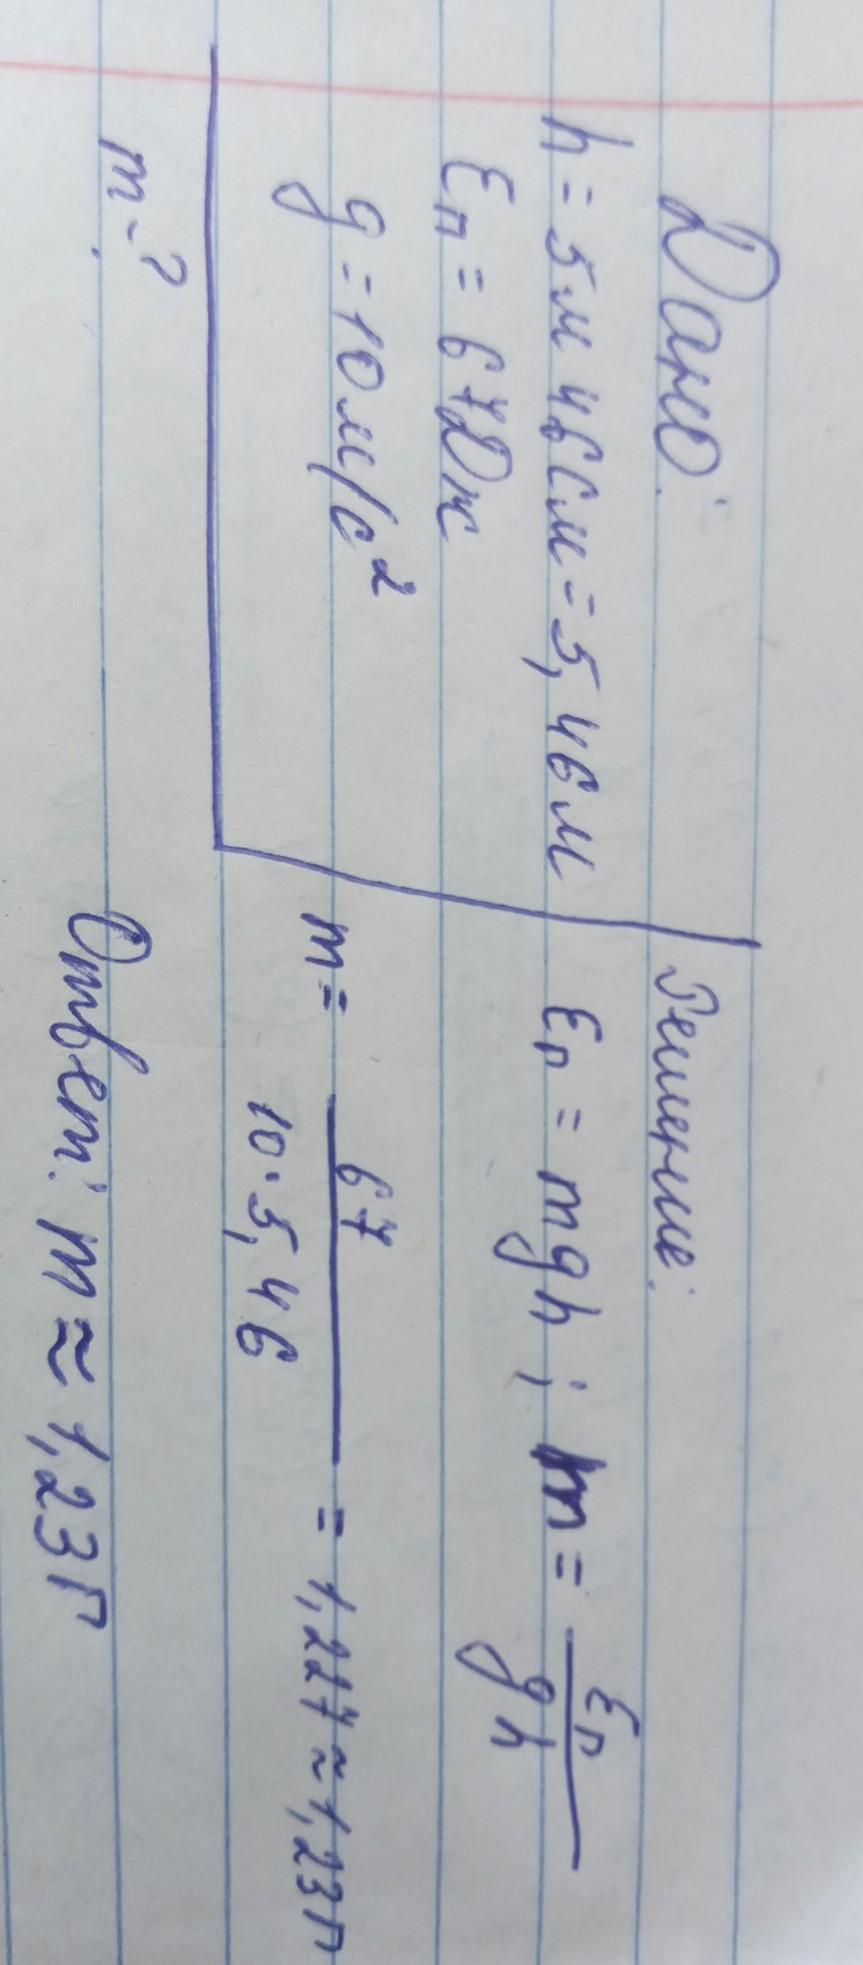 Дано:
h = 5м 46см = 5,46м
Eп = 67Дж
g = 10м/с²
m - ?
Решение:
Eп = mgh ; m = Eп / gh
m = 67 / 10·5,46 = 1,227 ≈ 1,23г
Ответ: m ≈ 1,23г